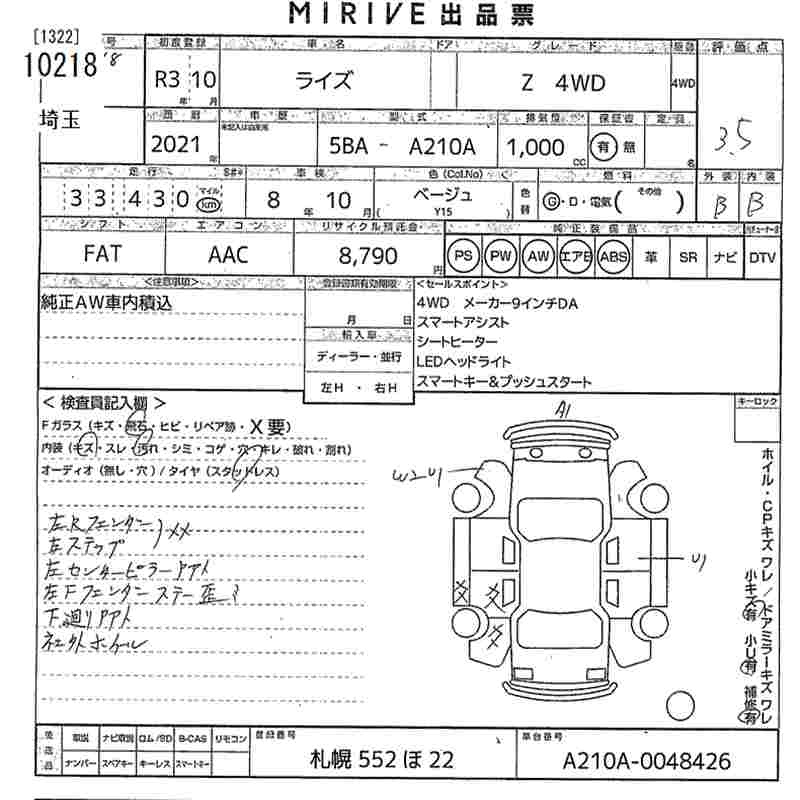 MIRIVE出品票
[1322]
10218
8
号
埼玉
初度登録 車名 ドア グレード 駆動 評価点
R3 10 ライズ Z 4WD 4WD
年 月
3.5
車歴 型式 排気量 保証書 定員
2021 年
未記入は自家用
5BA - A210A 1,000 CC 有 無 名
走行 車検 色(Col.No) 燃料 外装 内装
33430 マイル km
8 年 10 月
ベージュ
( Y15 )
色替
G・D・電気( その他 )
B B
シフト エアコン リサイクル預託金 純正装備品
FAT AAC 8,790 円 PS PW AW エアB ABS 革 SR ナビ DTV
<注意事項> <セールスポイント>
純正AW車内積込
月 日
輸入車
ディーラー・並行
左H ・ 右H
4WD メーカー9インチDA
スマートアシスト
シートヒーター
LEDヘッドライト
スマートキー&プッシュスタート
< 検査員記入欄 >
キーロック
Fガラス (キズ・飛石・ヒビ・リペア跡・X要)
内装 (キズ・スレ・汚れ・シミ・コゲ・穴・キレ・破れ・割れ)
オーディオ (無し・穴) / タイヤ (スタッドレス)
左Rフェンダー
左ステップ
XX
左センターピラーアト
左Fフェンダーステー歪ミ
下廻りアト
A1
W2U1
U1
XX
XX
XX
ホイル・CPキズワレ/ドアミラーキズワレ
小キズ有 小U有 補修有
後送品
取説 ナビ取説 ロム/SD B-CAS リモコン
ナンバー スペアキー キーレス スマートキー
登録番号
札幌 552 ほ 22
車台番号
A210A-0048426